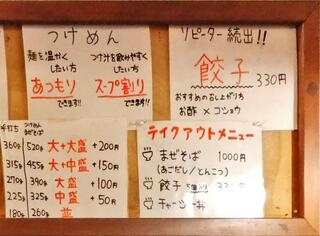 つけめん
麺を温かく
したい方
あつもり
できます!!
つけ汁を飲みやすく
したい方
スープ割り
できます!!
リピーター続出!!
餃子 330円
おすすめの召し上がり方
お酢 × コショウ
つけめん
まぜそば
360g 520g 大+大盛 +200円
315g 455g 大+中盛 +150円
270g 390g 大盛 +100円
225g 325g 中盛 +50円
180g 260g 並
テイクアウトメニュー
まぜそば 1000円
(あごだし/とんこつ)
餃子 5個入り
チャーシュー丼